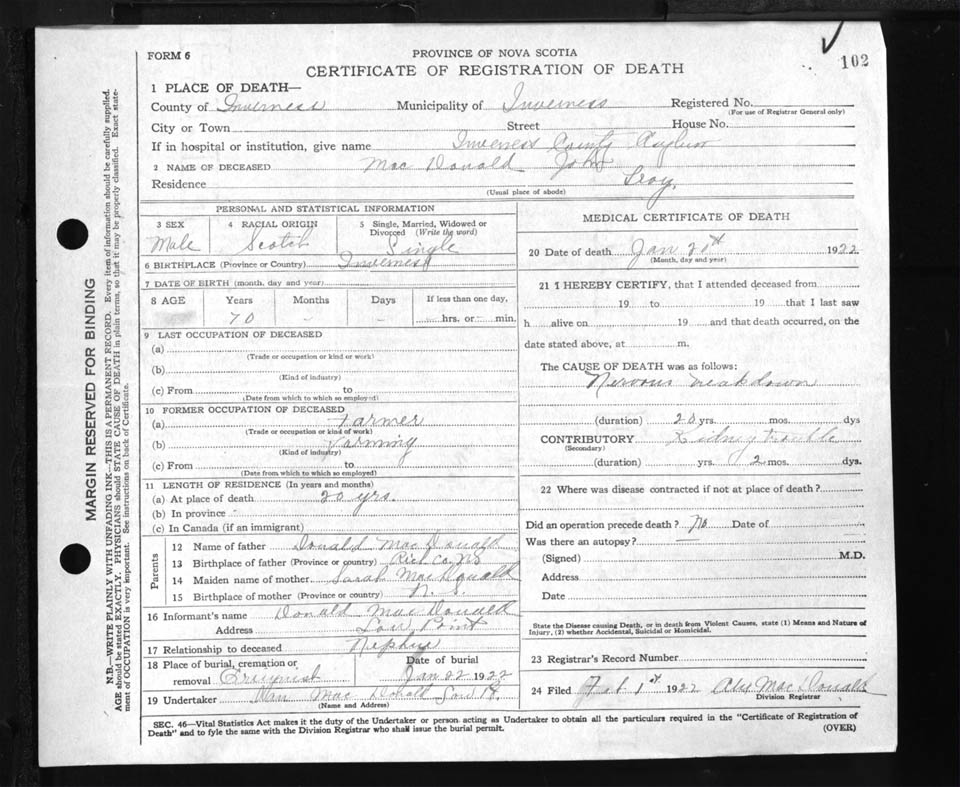 FORM 6
PROVINCE OF NOVA SCOTIA
102
CERTIFICATE OF REGISTRATION OF DEATH
1 PLACE OF DEATH—
County of Inverness Municipality of Inverness Registered No.
(For use of Registrar General only)
City or Town Street House No.
If in hospital or institution, give name Inverness County Asylum
2 NAME OF DECEASED Mac Donald John
Residence Troy,
(Usual place of abode)
PERSONAL AND STATISTICAL INFORMATION
3 SEX 4 RACIAL ORIGIN 5 Single, Married, Widowed or Divorced (Write the word)
Male Scotch Single
6 BIRTHPLACE (Province or Country) Inverness
7 DATE OF BIRTH (month, day and year)
8 AGE Years Months Days If less than one day,
70 - - hrs. or min.
9 LAST OCCUPATION OF DECEASED
(a)
(Trade or occupation or kind or work)
(b)
(Kind of industry)
(c) From to
(Date from which to which so employed)
10 FORMER OCCUPATION OF DECEASED
(a) Farmer
(Trade or occupation or kind of work)
(b) Farming
(Kind of industry)
(c) From to
(Date from which to which so employed)
11 LENGTH OF RESIDENCE (In years and months)
(a) At place of death 20 yrs.
(b) In province
(c) In Canada (if an immigrant)
Parents
12 Name of father Donald Mac Donald
13 Birthplace of father (Province or country) Rich Co. NS
14 Maiden name of mother Sarah Mac Donald
15 Birthplace of mother (Province or country) N. S.
16 Informant's name Donald Mac Donald
Address Low Point
17 Relationship to deceased Nephew
18 Place of burial, cremation or Date of burial
removal Craignish Jan 22 1922
19 Undertaker Mac Donald Low Pt
(Name and Address)
MEDICAL CERTIFICATE OF DEATH
20 Date of death Jan 20th 1922
(Month, day and year)
21 I HEREBY CERTIFY, that I attended deceased from
19 to 19 that I last saw
h alive on 19 and that death occurred, on the
date stated above, at m.
The CAUSE OF DEATH was as follows:
Nervous Breakdown
(duration) 20 yrs. mos. dys
CONTRIBUTORY Kidney trouble
(Secondary)
(duration) yrs. 2 mos. dys.
22 Where was disease contracted if not at place of death?
Did an operation precede death? No Date of
Was there an autopsy? —
(Signed) M.D.
Address
Date
State the Disease causing Death, or in death from Violent Causes, state (1) Means and Nature of
Injury, (2) whether Accidental, Suicidal or Homicidal.
23 Registrar's Record Number
24 Filed Feb 1st 1922 Alex Mac Donald
Division Registrar
SEC. 46—Vital Statistics Act makes it the duty of the Undertaker or person acting as Undertaker to obtain all the particulars required in the "Certificate of Registration of
Death" and to fyle the same with the Division Registrar who shall issue the burial permit.
(OVER)
MARGIN RESERVED FOR BINDING
N.B.—WRITE PLAINLY WITH UNFADING INK—THIS IS A PERMANENT RECORD. Every item of information should be carefully supplied.
AGE should be stated EXACTLY. PHYSICIANS should STATE CAUSE OF DEATH in plain terms, so that it may be properly classified. Exact state-
ment of OCCUPATION is very important. See instructions on back of Certificate.